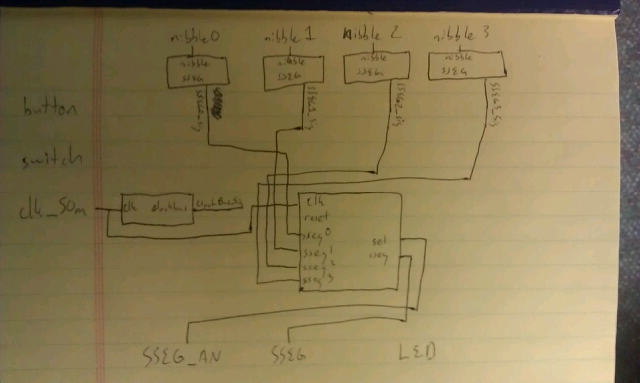 nibble0 nibble 1 nibble 2 nibble 3
nibble nibble nibble nibble
SSEG SSEG SSEG SSEG
button
switch
clk_50m clk
clk
reset
sseg0
sseg1
sseg2
sseg3
sel
sseg
SSEG_AN SSEG LED